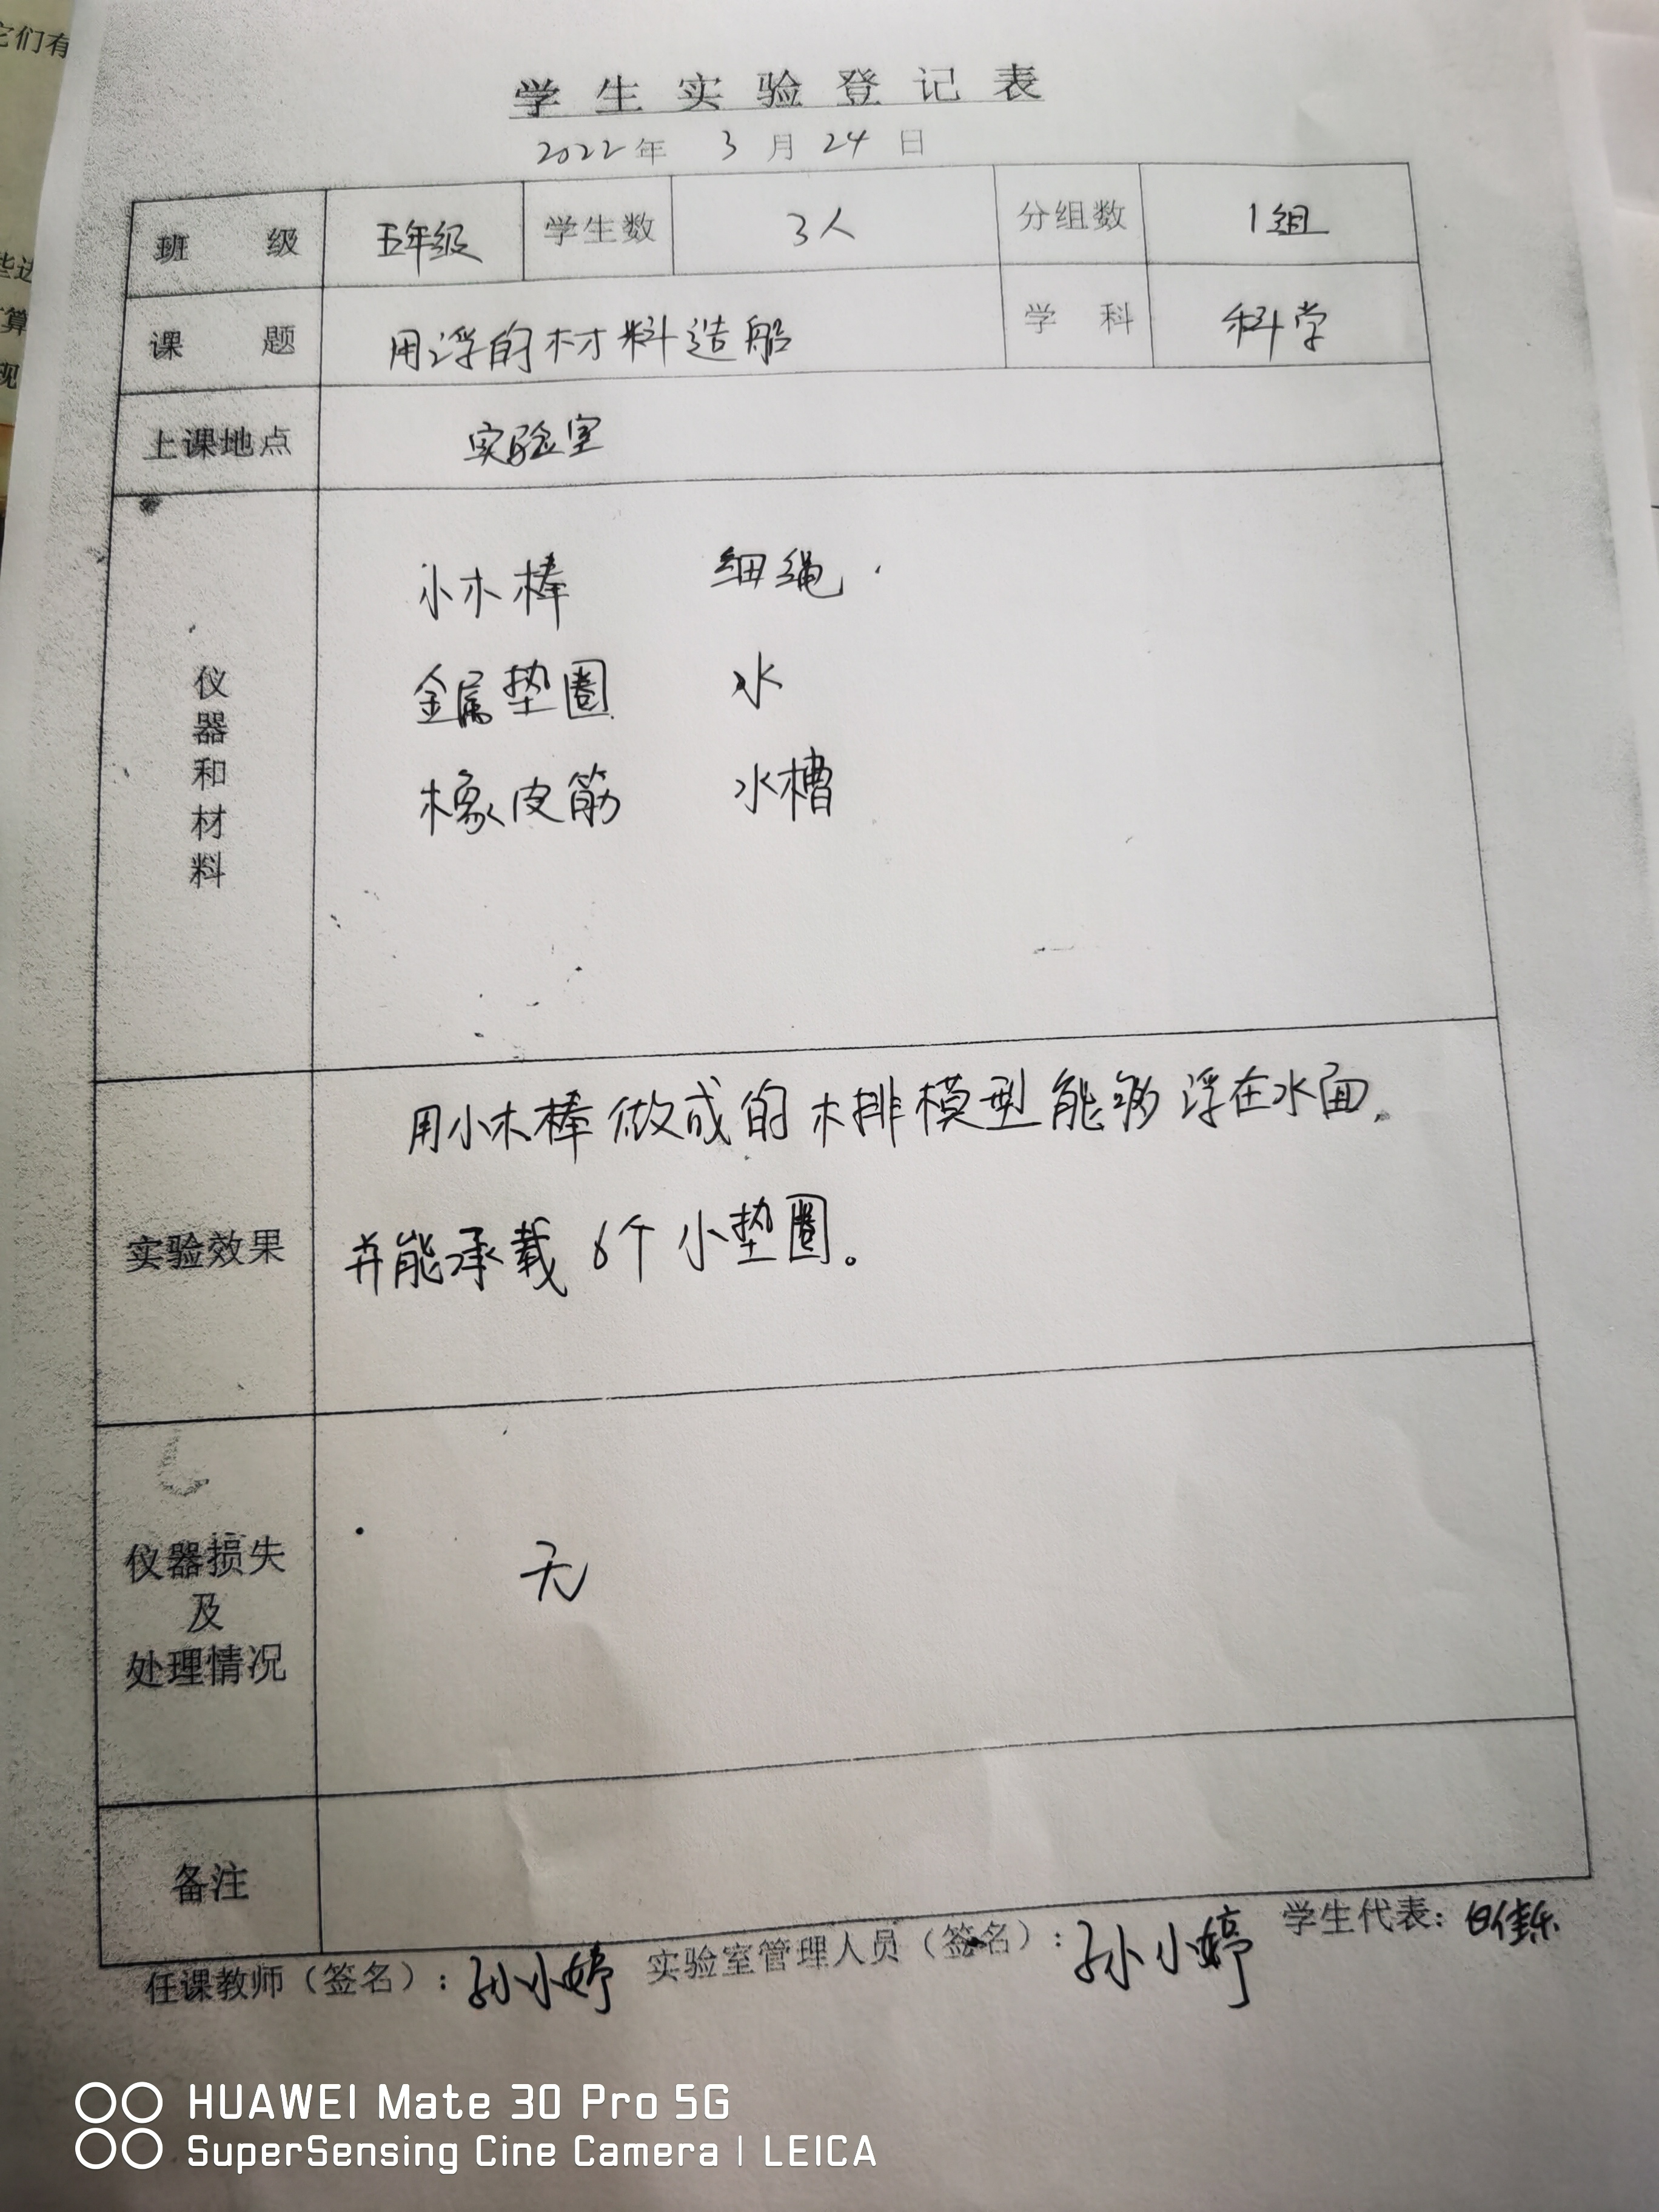 它们有
学生实验登记表
2022年 3月24日
班级 五年级 学生数 3人 分组数 1组
课题 用浮的材料造船 学科 科学
上课地点 实验室
仪器和材料
小木棒 细绳
金属垫圈 水
橡皮筋 水槽
实验效果
用小木棒做成的木排模型能够浮在水面,
并能承载6个小垫圈。
仪器损失
及
处理情况
无
备注
任课教师（签名）：孙小婷 实验室管理人员（签名）：孙小婷 学生代表：
HUAWEI Mate 30 Pro 5G
SuperSensing Cine Camera | LEICA